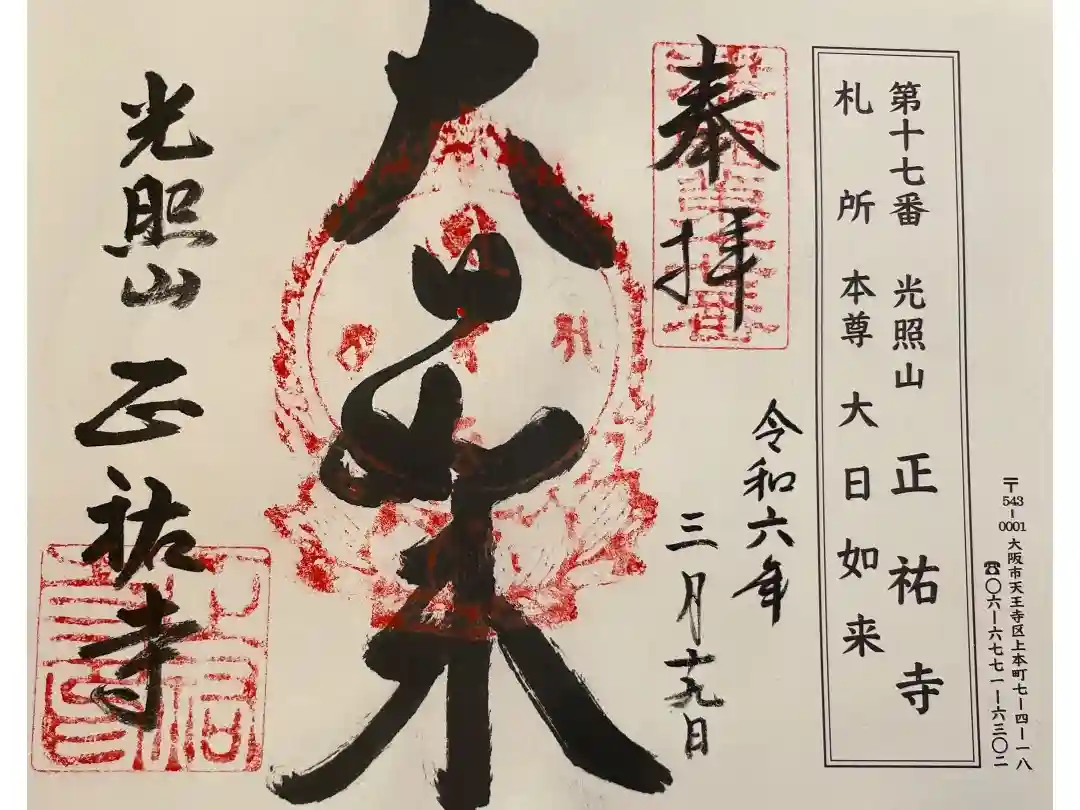 〒543-0001 大阪市天王寺区上本町七ー四ー一八
☎〇六ー六七七一ー六三〇二
第十七番 光照山 正祐寺
札所 本尊 大日如来
奉拝
令和六年
三月十九日
大日如来
光照山 正祐寺